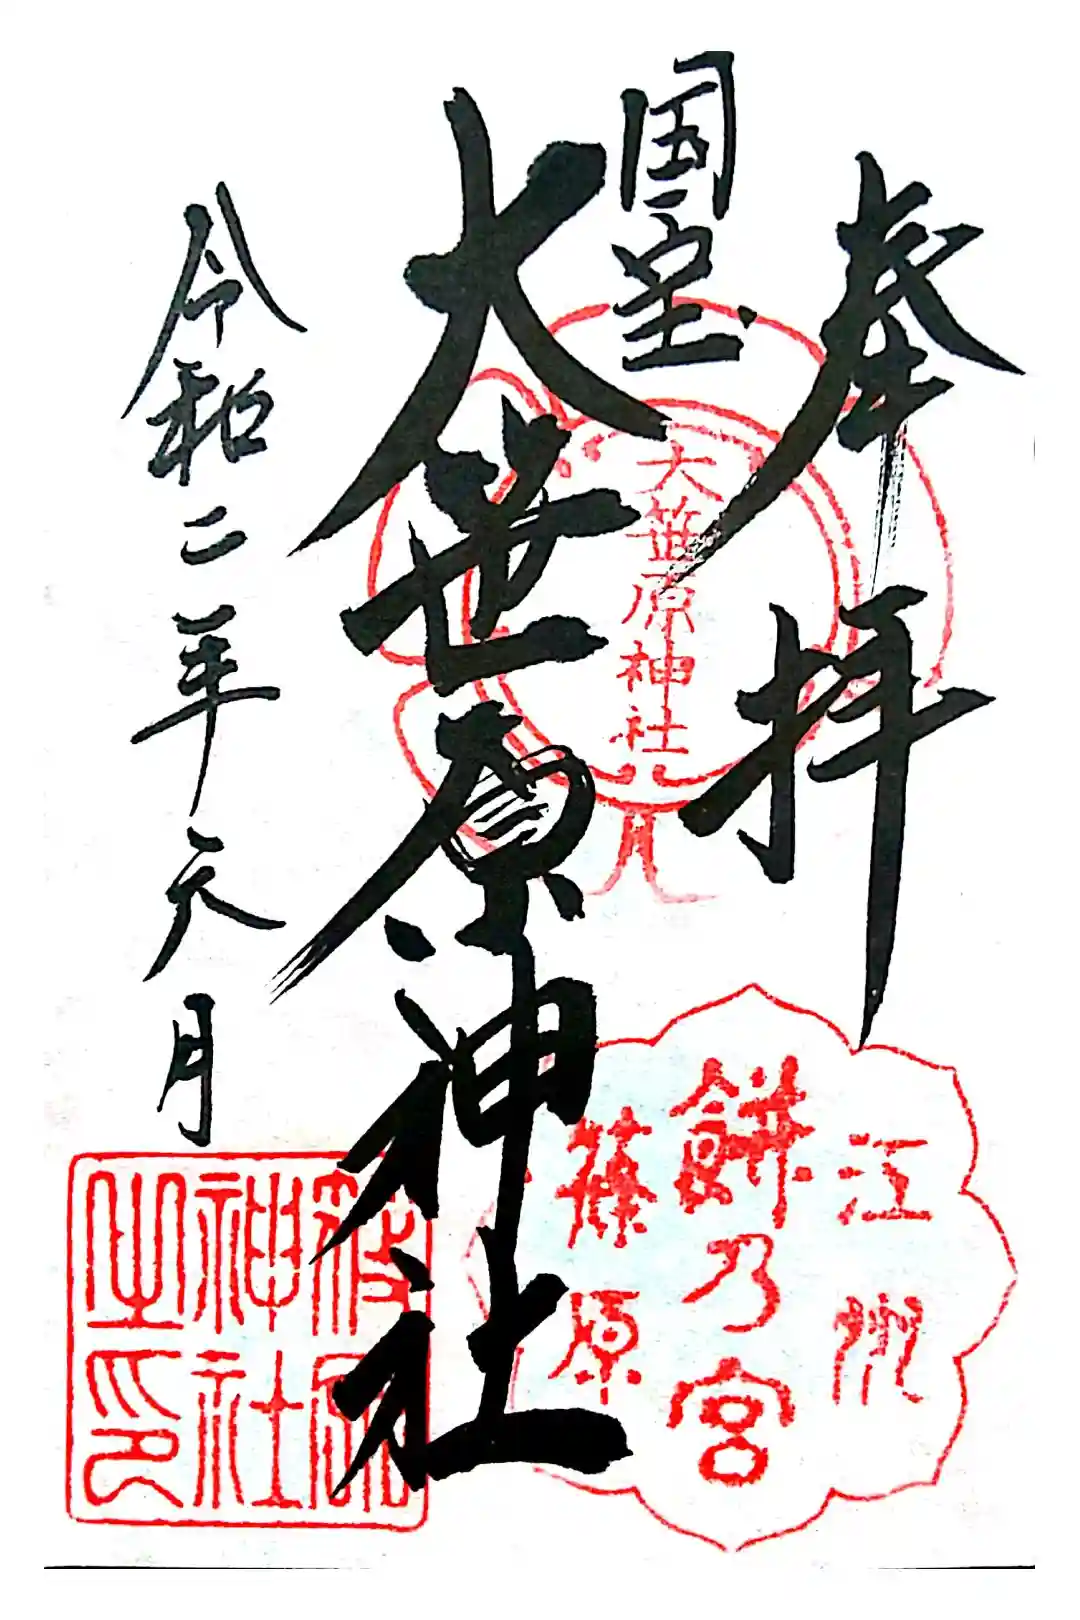 奉拝
国宝
大笹原神社
令和二年六月
大笹原神社
江州
餅乃宮
篠原
神社
之印